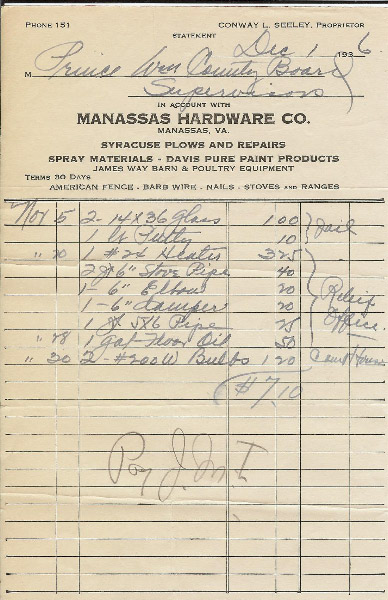 PHONE 151 CONWAY L. SEELEY, PROPRIETOR
STATEMENT
Dec 1 1936
M Prince Wm County Board
Supervisors
IN ACCOUNT WITH
MANASSAS HARDWARE CO.
MANASSAS, VA.
SYRACUSE PLOWS AND REPAIRS
SPRAY MATERIALS - DAVIS PURE PAINT PRODUCTS
JAMES WAY BARN & POULTRY EQUIPMENT
TERMS 30 DAYS
AMERICAN FENCE - BARB WIRE - NAILS - STOVES AND RANGES
Nov 5 2- 14X36 Glass 1 00 Jail
1 Putty 10
" 20 1 #24 Heater 3 25
2 6" Stove Pipe 40
1- 6" Elbow 20 Relief
1- 6" damper 20 Office
1 5X6 Pipe 25
" 28 1 gal Floor Oil 50
" 30 2- #200W Bulbs 1 20 Court House
$7.10
Pay J.